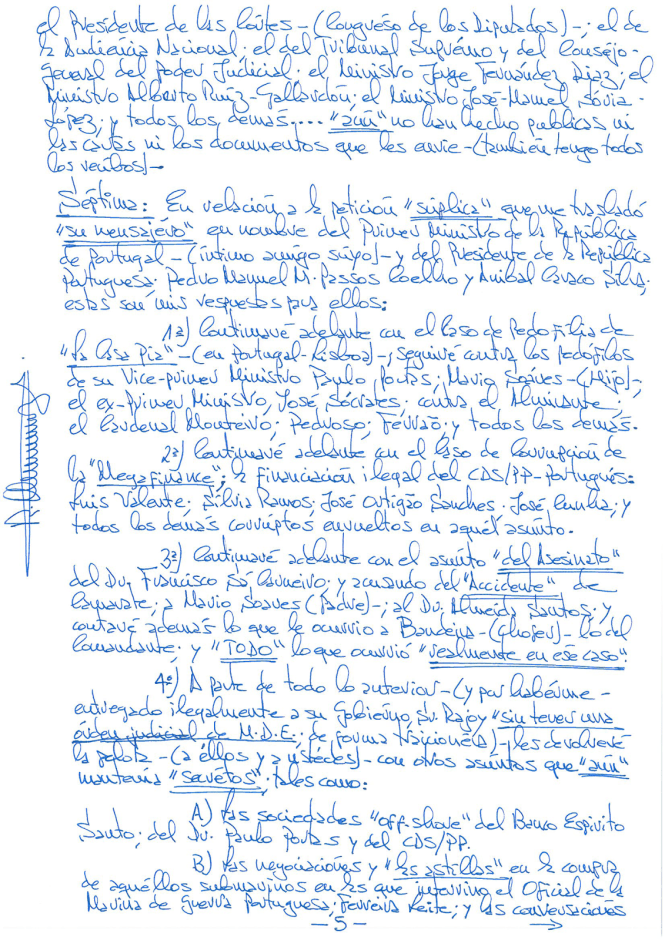 el Presidente de las Cortes-(Congreso de los Diputados)-; el de
la Audiencia Nacional; el del Tribunal Supremo y del Consejo-
General del Poder Judicial; el Ministro Jorge Fernández Díaz; el
Ministro Alberto Ruíz-Gallardón; el Ministro José-Manuel Soria-
López; y todos los demás.... "aún" no han hecho publicas ni
las cartas ni los documentos que les envie-(también tengo todos
los recibos)-
Séptima: En relación a la petición "súplica" que me trasladó
"su mensajero" en nombre del Primer Ministro de la República
de Portugal-(íntimo amigo suyo)-y del Presidente de la República
Portuguesa; Pedro Manuel M. Passos Coelho y Anibal Cavaco Silva;
estas son mis respuestas para ellos:
1ª) Continuaré adelante con el Caso de Pedofilia de
"La Casa Pia"-(en Portugal-Lisboa)-; seguiré contra los pedófilos
de su Vice-primer Ministro Paulo Portas; Mario Soares-(Hijo)-;
el ex-Primer Ministro, José Sócrates; contra el Almirante;
el Cardenal Monteiro; Pedroso; Ferrao; y todos los demás.
2ª) Continuaré adelante con el Caso de Corrupción de
la "Megafinance"; la financiación ilegal del CDS/PP-Portugués:
Luis Valente; Silvia Ramos; José Ortigão Sanches; José Cunha; y
todos los demás corruptos envueltos en aquél asunto.
3ª) Continuaré adelante con el asunto "del Asesinato"
del Dr. Francisco Sá Carneiro; y acusando del "Accidente" de
Camarate; a Mario Soares (Padre)-; al Dr. Almeida Santos; y
contaré además lo que le ocurrio a Bandeira-(Chofer)-lo del
Comandante; y "TODO" lo que ocurrió "realmente en ese caso".
4º) A parte de todo lo anterior-(y por habérme-
entregado ilegalmente a su Gobierno, Sr. Rajoy "sin tener una
orden judicial de M.D.E; de forma traicionera)-les devolveré
la pelota-(a éllos y a ustédes)-con otros asuntos que "aún"
mantenía "secrétos"; tales como:
A) Las sociedades "off-shore" del Banco Espirito
Santo; del Dr. Paulo Portas y del CDS/PP.
B) Las negociaciones y "las astillas" en la compra
de aquéllos submarinos en las que intervino el Oficial de la
Marina de Guerra Portuguesa; Ferreira Leite; y las conversaciones
-5- →